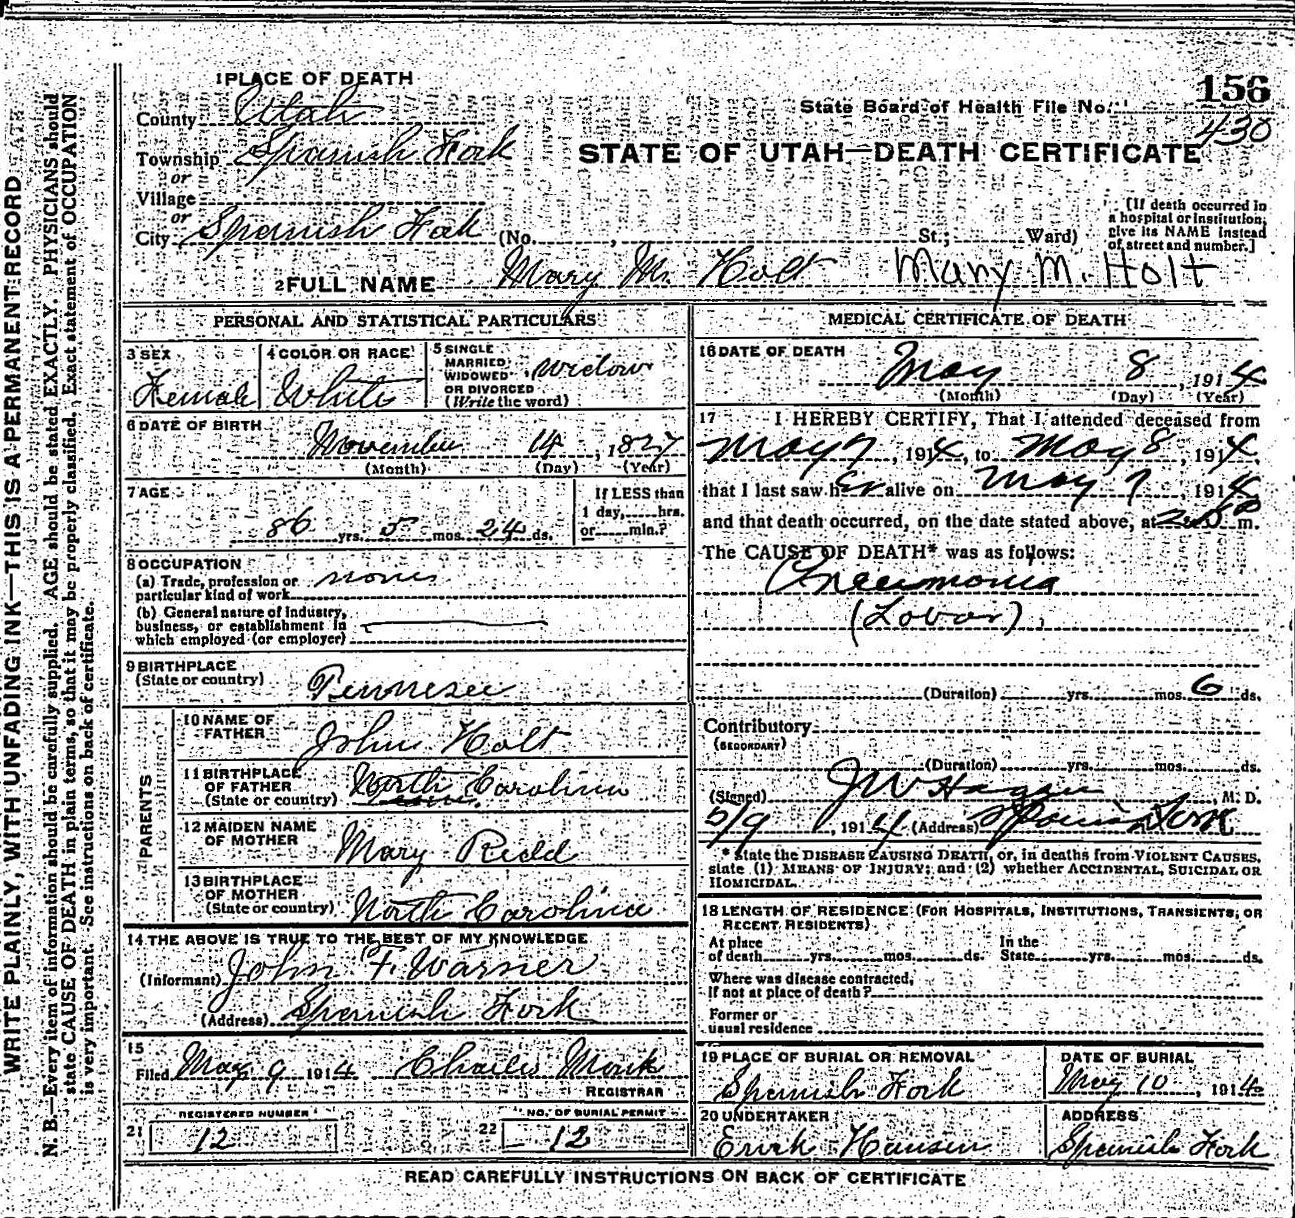 WRITE PLAINLY, WITH UNFADING INK—THIS IS A PERMANENT RECORD
N. B.—Every item of information should be carefully supplied. AGE should be stated EXACTLY. PHYSICIANS should
state CAUSE OF DEATH in plain terms, so that it may be properly classified. Exact statement of OCCUPATION
is very important. See instructions on back of certificate.
1 PLACE OF DEATH
County Utah
Township Spanish Fork
or
Village
or
City Spanish Fork (No. , St.; Ward)
156
State Board of Health File No.
430
STATE OF UTAH—DEATH CERTIFICATE
[If death occurred in
a hospital or institution,
give its NAME instead
of street and number.]
2 FULL NAME Mary M. Holt Mary M. Holt
PERSONAL AND STATISTICAL PARTICULARS
3 SEX
Female
4 COLOR OR RACE
White
5 SINGLE
MARRIED
WIDOWED
OR DIVORCED
(Write the word)
Widow
6 DATE OF BIRTH
November 14, 1827
(Month) (Day) (Year)
7 AGE
86 yrs. 5 mos. 24 ds.
If LESS than
1 day, hrs.
or min.?
8 OCCUPATION
(a) Trade, profession or
particular kind of work
(b) General nature of industry,
business, or establishment in
which employed (or employer)
9 BIRTHPLACE
(State or country)
Tennesee
PARENTS
10 NAME OF
FATHER
John Holt
11 BIRTHPLACE
OF FATHER
(State or country)
North Carolina
12 MAIDEN NAME
OF MOTHER
Mary Redd
13 BIRTHPLACE
OF MOTHER
(State or country)
North Carolina
14 THE ABOVE IS TRUE TO THE BEST OF MY KNOWLEDGE
(Informant) John F. Warner
(Address) Spanish Fork
15
Filed May 9 1914 Charles Monk
REGISTRAR
21 REGISTERED NUMBER
12
22 NO. OF BURIAL PERMIT
12
MEDICAL CERTIFICATE OF DEATH
16 DATE OF DEATH
May 8, 1914
(Month) (Day) (Year)
17 I HEREBY CERTIFY, That I attended deceased from
May 7, 1914, to May 8, 1914,
that I last saw her alive on May 7, 1914
and that death occurred, on the date stated above, at m.
The CAUSE OF DEATH* was as follows:
Pneumonia
(Lobar).
(Duration) yrs. mos. 6 ds.
Contributory
(SECONDARY)
(Duration) yrs. mos. ds.
(Signed) J W Hagan, M. D.
5/9, 1914 (Address) Spanish Fork
* State the DISEASE CAUSING DEATH, or, in deaths from VIOLENT CAUSES,
state (1) MEANS OF INJURY; and (2) whether ACCIDENTAL, SUICIDAL OR
HOMICIDAL.
18 LENGTH OF RESIDENCE (FOR HOSPITALS, INSTITUTIONS, TRANSIENTS, OR
RECENT RESIDENTS)
At place
of death yrs. mos. ds.
In the
State yrs. mos. ds.
Where was disease contracted,
if not at place of death?
Former or
usual residence
19 PLACE OF BURIAL OR REMOVAL
Spanish Fork
DATE OF BURIAL
May 10, 1914
20 UNDERTAKER
Erick Hansen
ADDRESS
Spanish Fork
READ CAREFULLY INSTRUCTIONS ON BACK OF CERTIFICATE